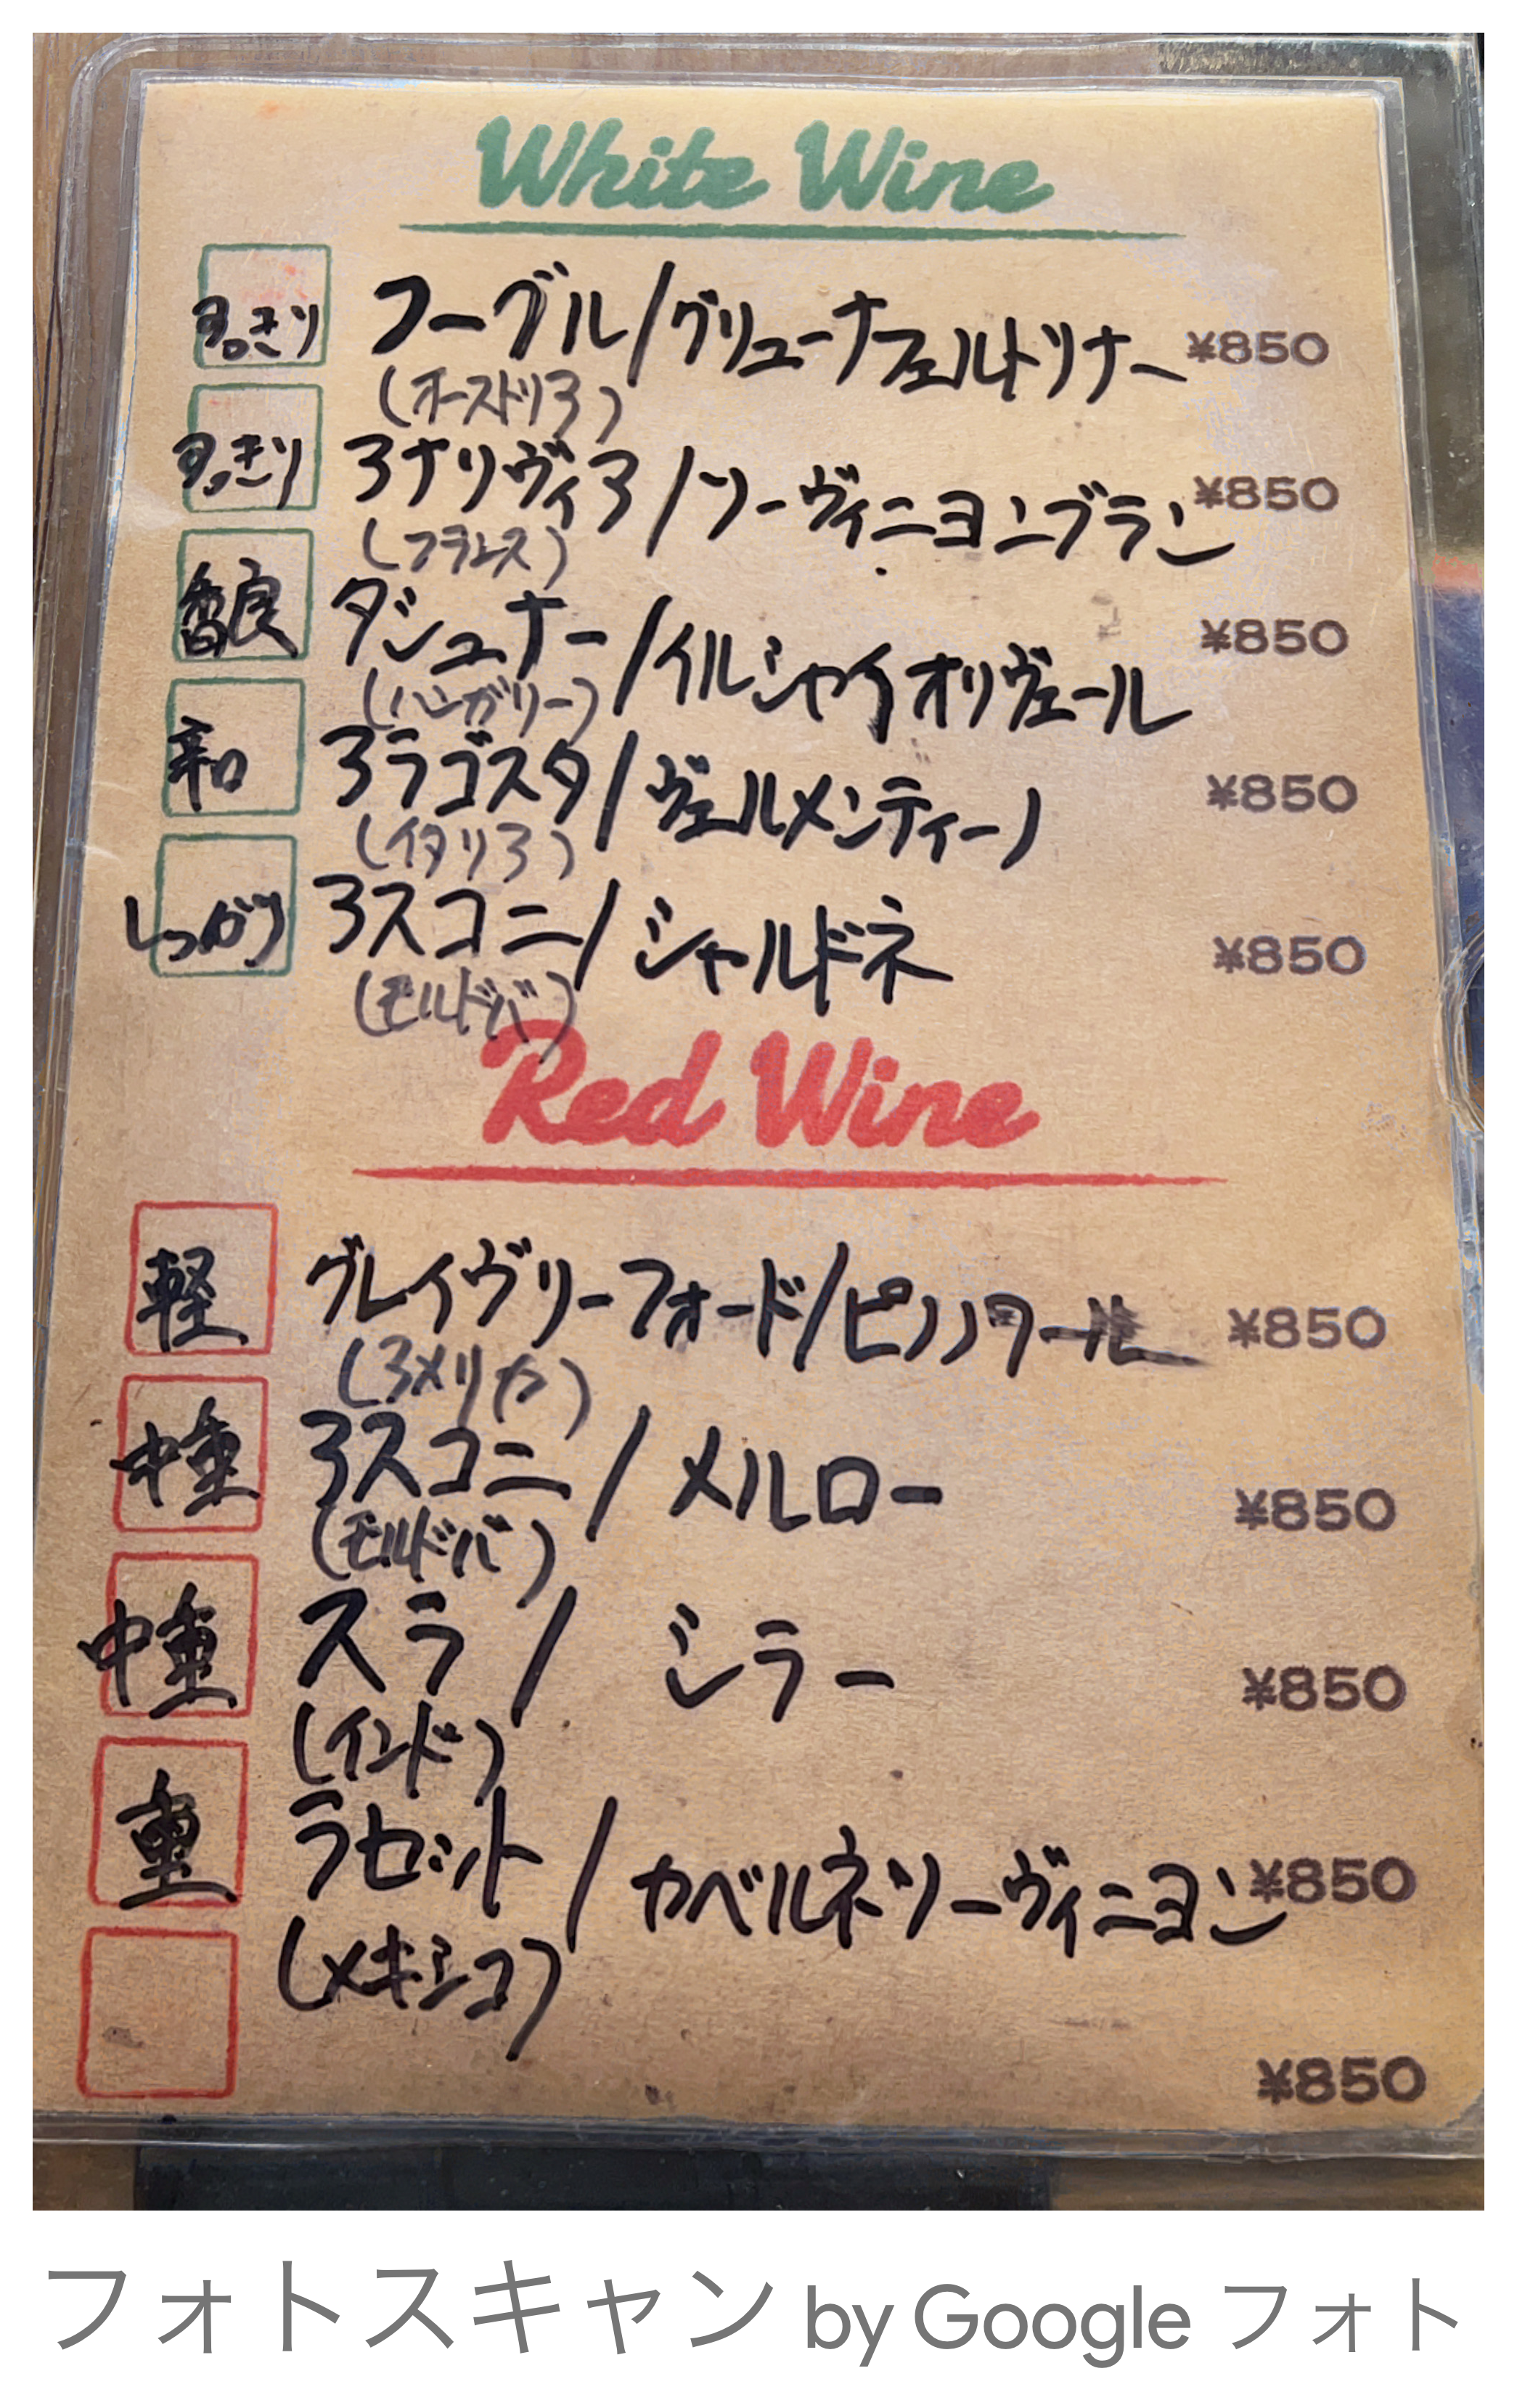 White Wine
すっきり フーグル/グリューナーフェルトリナー ¥850
(オーストリア)
すっきり アナリヴィア/ソーヴィニヨンブラン ¥850
(フランス)
香良 ダシュナー/イルシャイオリヴェール ¥850
(ハンガリー)
辛口 アラゴスタ/ヴェルメンティーノ ¥850
(イタリア)
しっかり アスコニ/シャルドネ ¥850
(モルドバ)
Red Wine
軽 グレイヴリーフォード/ピノノワール ¥850
(アメリカ)
中重 アスコニ/メルロー ¥850
(モルドバ)
中重 スラ/シラー ¥850
(インド)
重 ラセット/カベルネソーヴィニヨン ¥850
(メキシコ)
¥850
フォトスキャン by Google フォト